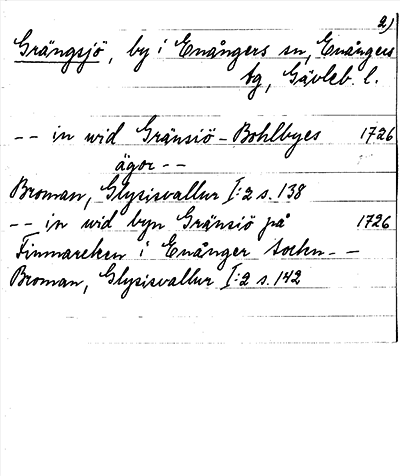 2)
Grängsjö, by i Enångers sn, Enångers
tg, Gävleb. l.
-- in wid Gränsiö-Bohlbyes 1726
ägor --
Broman, Glysisvallur I:2 s. 138
-- in wid byn Gränsiö på 1726
Finmarcken i Enånger Sochn --
Broman, Glysisvallur I:2 s. 142